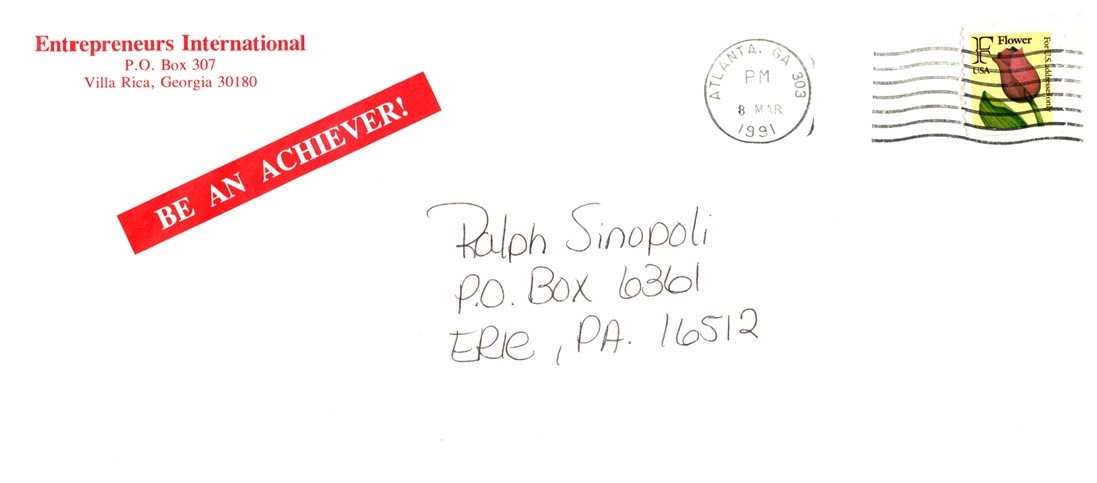 Entrepreneurs International
P.O. Box 307
Villa Rica, Georgia 30180
BE AN ACHIEVER!
ATLANTA, GA 303
PM
8 MAR
1991
F Flower
USA
For U.S. addresses only
Ralph Sinopoli
P.O. Box 6361
ERIE, PA. 16512